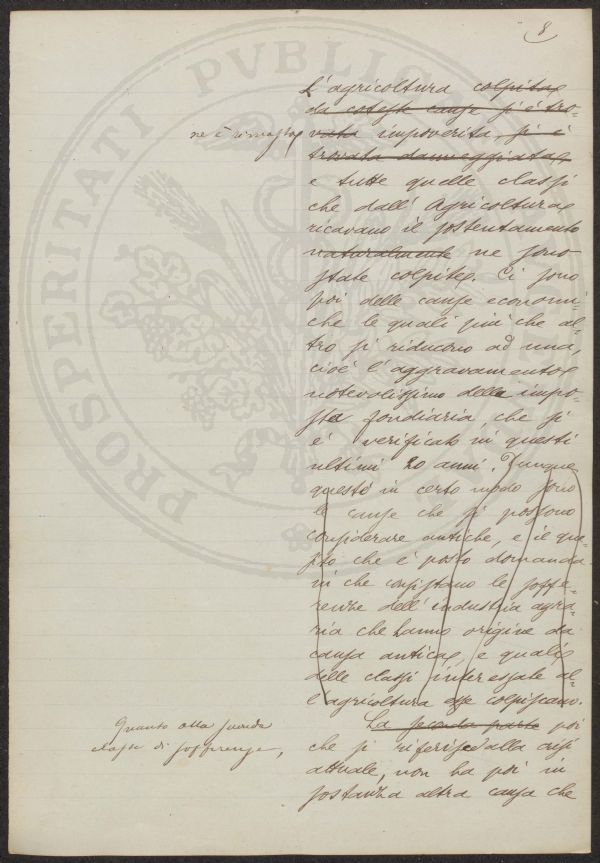 8
PROSPERITATI PVBLIC
L'agricoltura colpita
da coteste cause si è tro-
ne è rimasta
vata impoverita, si è
trovata danneggiata
e tutte quelle classi
che dall'Agricoltura
ricavano il sostentamento
naturalmente ne sono
state colpite. Ci sono
poi delle cause economi
che le quali più che al-
tro si riducono ad una,
cioè l'aggravamento
notevolissimo della impo-
sta fondiaria, che si
è verificato in questi
ultimi 20 anni. Dunque
queste in certo modo sono
le cause che si possono
considerare antiche, e il que-
sito che è posto domanda
in che consistano le soffe-
renze dell'industria agra-
ria che hanno origine da
causa antica, e quali
delle classi interessate al-
l'agricoltura esse colpiscano.
Quanto alla seconda
classe di sofferenze,
La seconda parte poi
che si riferisce alla crisi
attuale, non ha poi in
sostanza altra causa che